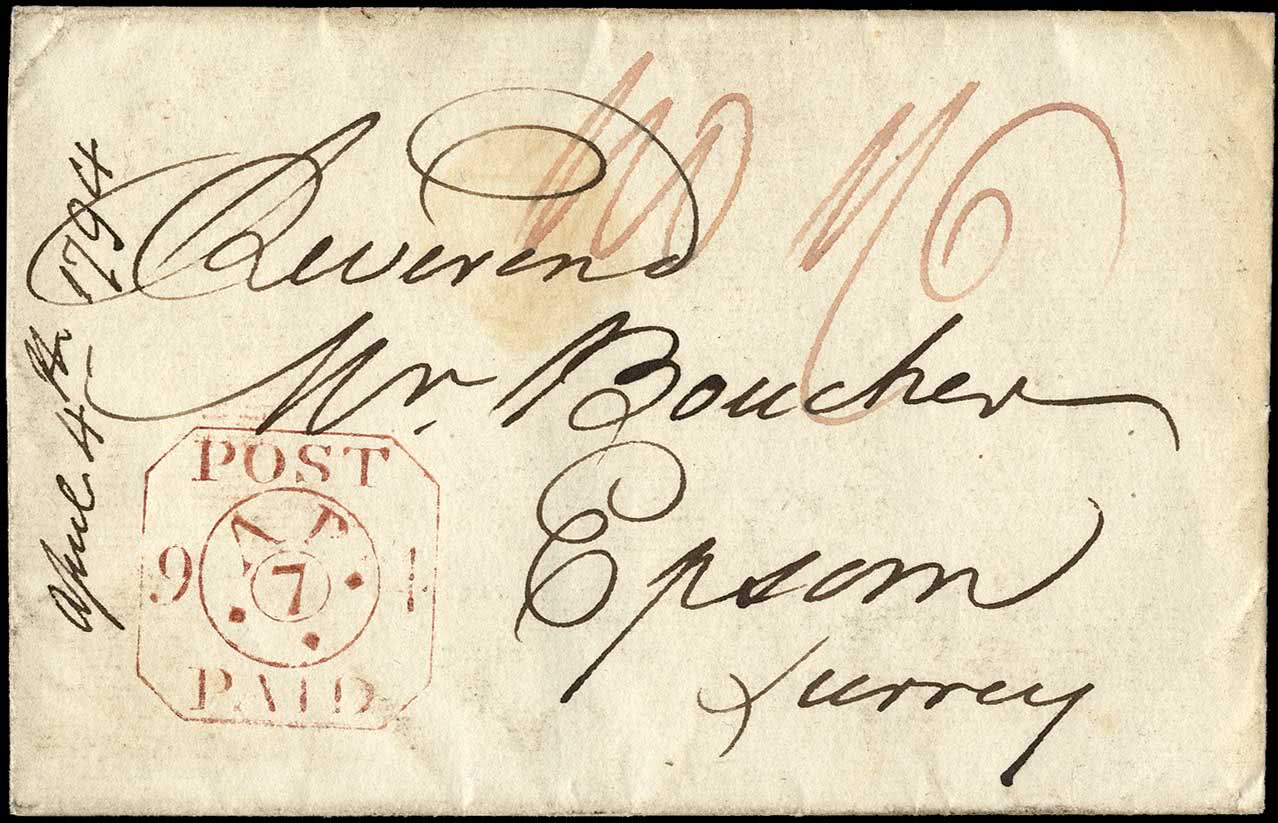 April 4th 1794
Reverend
Mr. Boucher
Epsom
Surrey
POST
AP
9 7 4
PAID